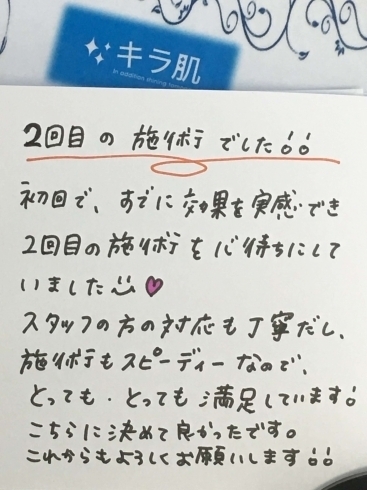 キラ肌
2回目の施術でした!!
初回で、すでに効果を実感でき
2回目の施術を心待ちにして
いました
スタッフの方の対応も丁寧だし、
施術もスピーディーなので、
とっても・とっても満足しています!
こちらに決めて良かったです。
これからもよろしくお願いします!!